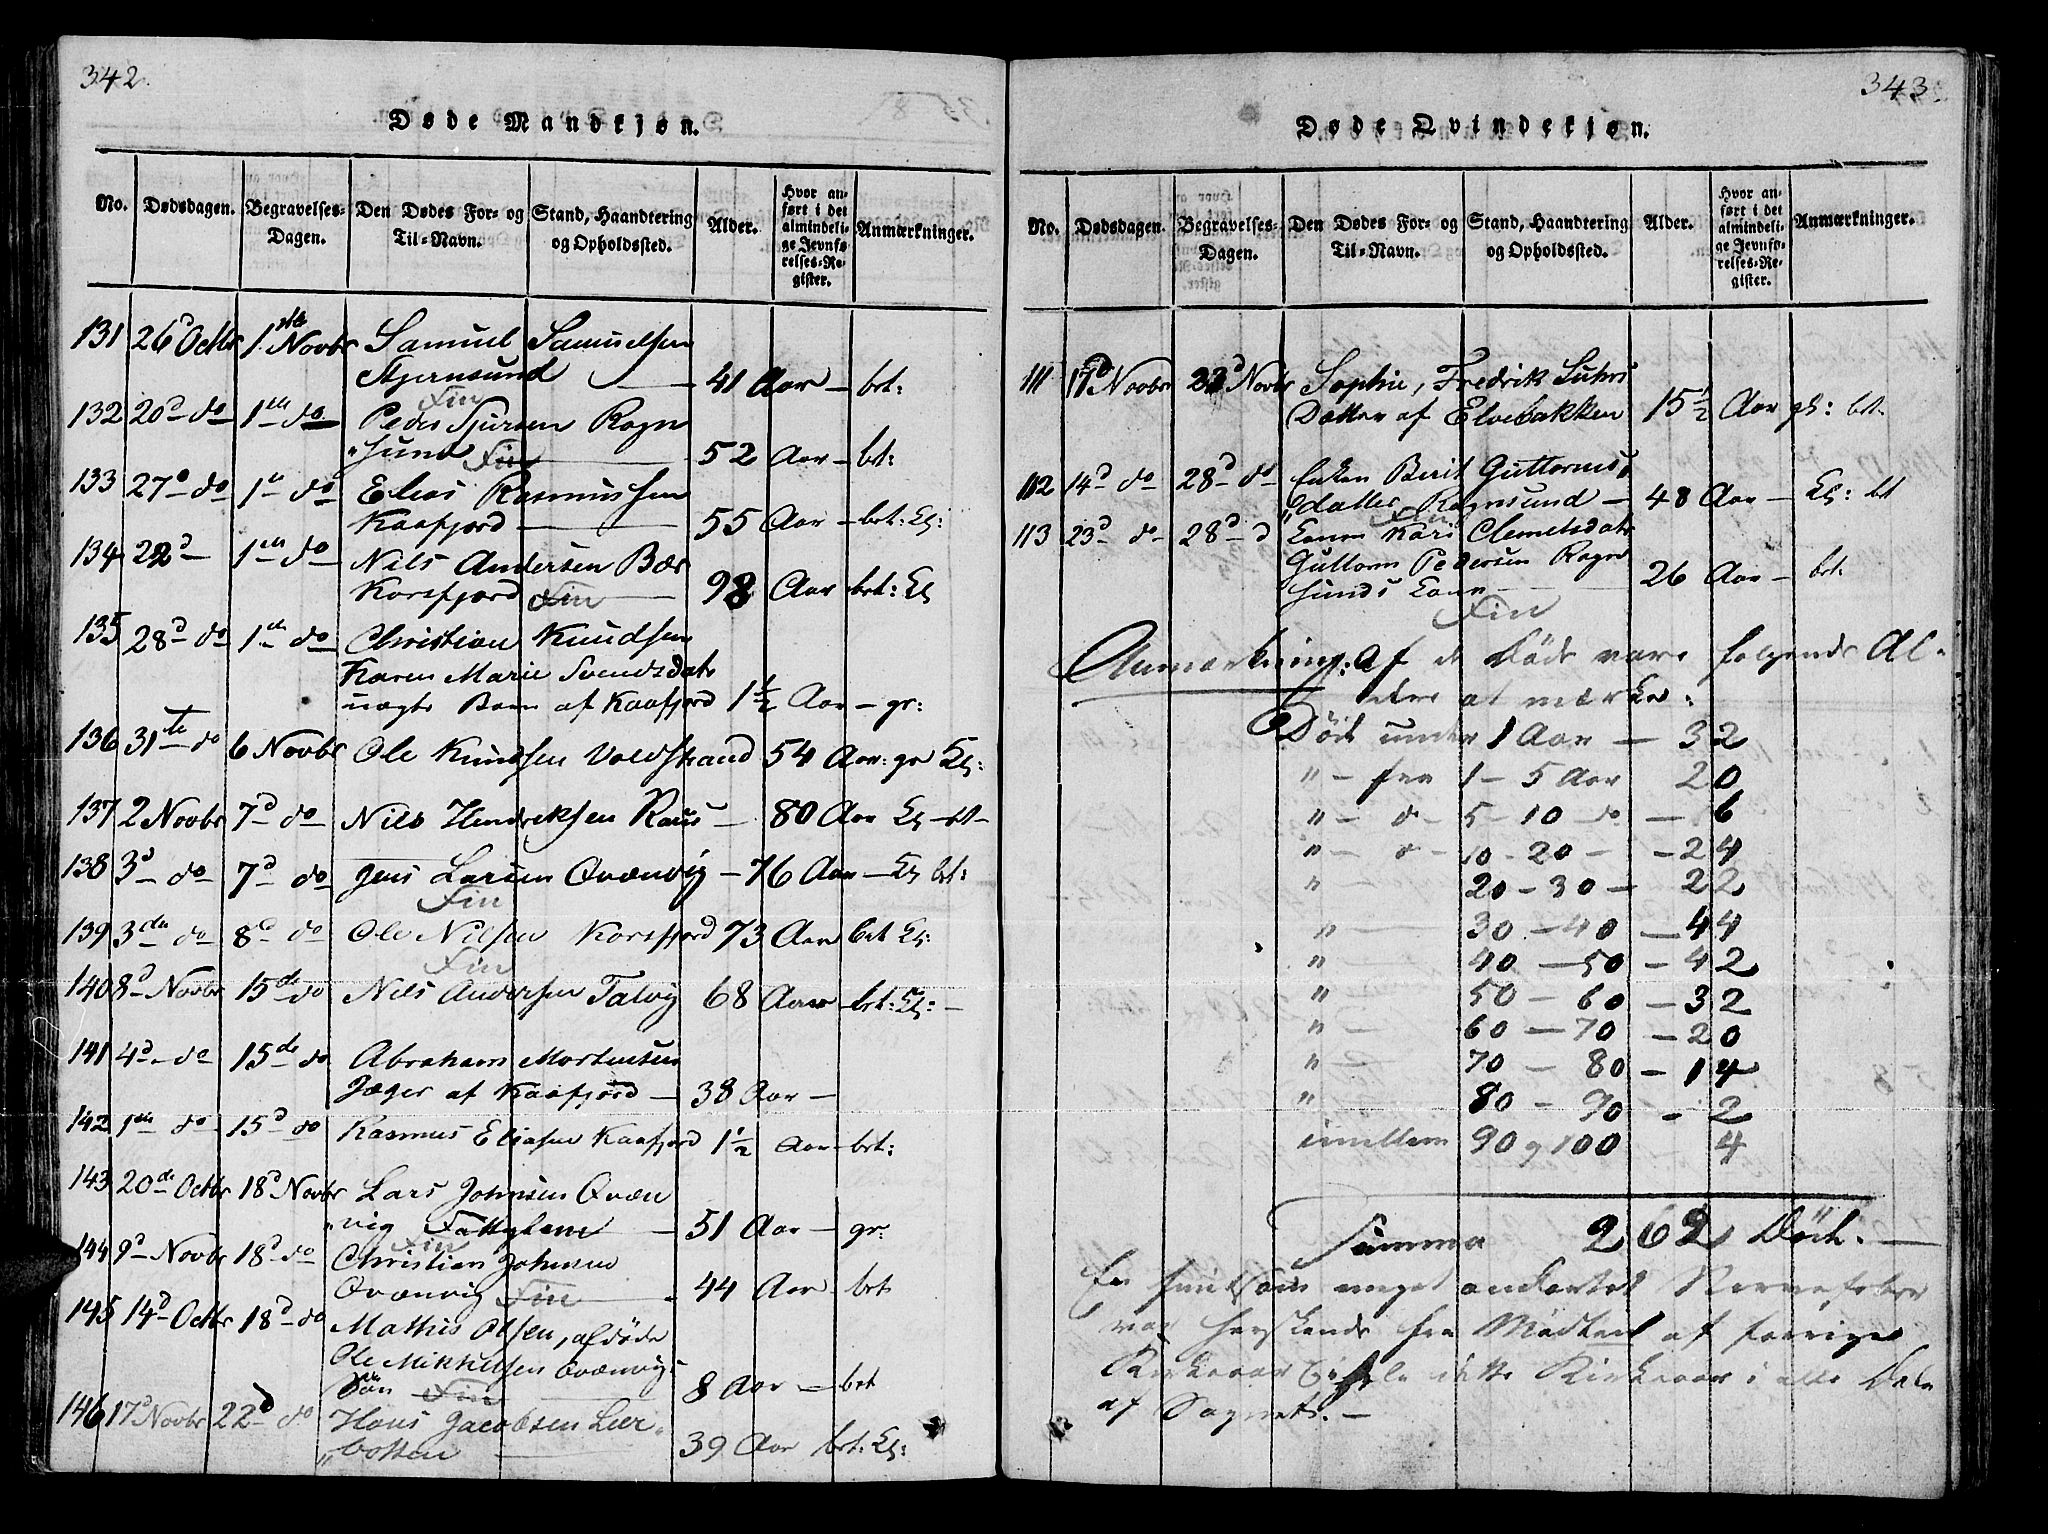 342.
Døde Mandkjøn.
No. Dødsdagen. Begravelses-Dagen. Den Dødes For- og Til-Navn. Stand, Haandtering og Opholdssted. Alder. Hvor anført i det almindelige Jevnførelses-Register. Anmærkninger.
131 26d Octbr 1ste Novbr Samuel Samuelsen
Stjernsund — 41 Aar — brt:
Fin
132 20d do 1ste do Peder Sjursen Rogn
"sund Fin — 52 Aar — brt:
133 27d do 1ste do Elias Rasmussen
Kaafjord — 55 Aar — brt: Kl:
134 22d 1ste do Nils Andersen Bær
Korsfjord Fin — 98 Aar brt: Kl
135 28d do 1ste do Christian Knudsen
Karen Marie Svendsdatr
uægte Barn af Kaafjord 1½ Aar — gr:
136 31te do 6 Novbr Ole Knudsen Voldstrand 54 Aar: gr Kl:
137 2 Novbr 7d do Nils Hendriksen Raus — 80 Aar Kl
138 3d do 7d do Jens Larsen Qvænvig — 76 Aar — Kl brt:
Fin
139 3die do 8d do Ole Nilsen Korsfjord 73 Aar brt Kl:
Fin
140 8d Novbr 15de do Nils Andersen Talvig 68 Aar — brt: Kl: —
141 4d do 15de do Abraham Mortensen
Jæger af Kaafjord — 38 Aar —
142 1ste do 15d do Rasmus Eliasen Kaafjord 1½ Aar — brt:
143 20de Octbr 18d Novbr Lars Johnsen Qvæn
"vig Fattiglem — 51 Aar — gr:
Fin
144 9d Novbr 18d do Christian Johnsen
Qvænvig Fin — 44 Aar brt
145 14d Octbr 18d do Mathis Olsen, afdøde
Ole Mikkelsen Qvænvig
Søn Fin 8 Aar — brt
146 17d Novbr 22d do Hans Jacobsen Leer
"botten — 39 Aar brt: Kl:
343.
Døde Qvindekjøn.
No. Dødsdagen. Begravelses-Dagen. Den Dødes For- og Til-Navn. Stand, Haandtering og Opholdssted. Alder. Hvor anført i det almindelige Jevnførelses-Register. Anmærkninger.
111 17d Novbr 22d Novbr Sophie, Fredrik Luhrs
Datter af Elvebakken 15½ Aar gl: brt.
112 14d do 28d do Enken Berit Guttorms
"datter Rognsund — 48 Aar — Kl: brt
Fin
113 23d do 28d d Konen Kari Clemetsdatr
Guttorm Pedersen Rogn
sunds Kone 26 Aar — brt:
Fin
Anmærkning: Af de Døde vare følgende Al-
dere at mærke:
Døde under 1 Aar — 32
" — fra 1 — 5 Aar 20
" — d — 5 — 10 do — 6
" — d — 10 - 20 — 24
" — 20 — 30 — 22
" — 30 — 40 — 44
" — 40 — 50 — 42
" — 50 — 60 — 32
" — 60 — 70 — 20
" — 70 — 80 — 14
" — 80 — 90 — 2
imellem 90 og 100 4
Summa 262 Døde. —
En saare meget Nervefeber
var herskende fra Midten af forrige
Kirkeaar hele dette Kirkeaar i alle Dele
af Sognet. —